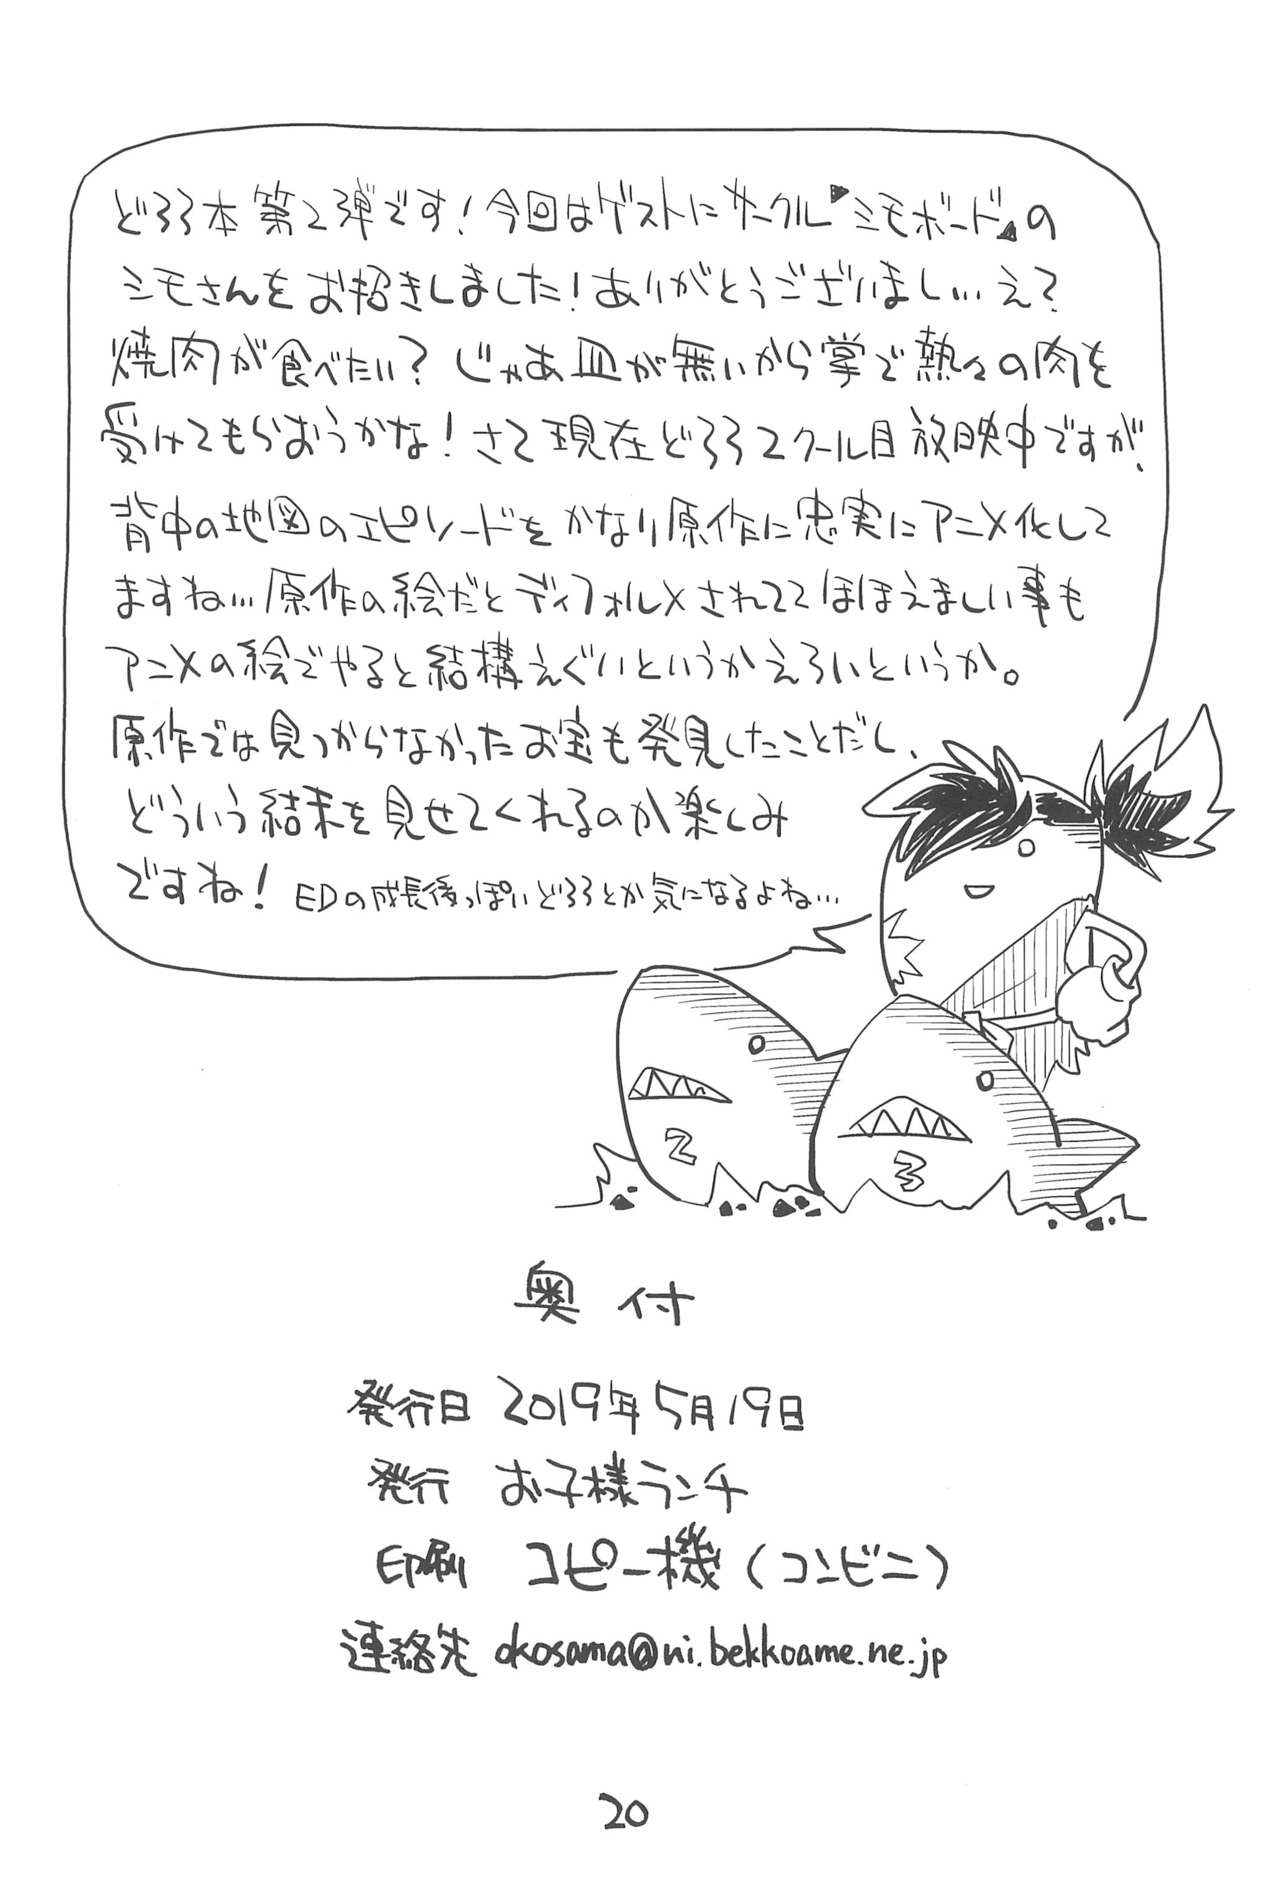 どろろ本第2弾です!今回はゲストにサークル『シモボード』の
シモさんをお招きしました!ありがとうございまし…え?
焼肉が食べたい?じゃあ皿が無いから掌で熱々の肉を
受けてもらおうかな!さて現在どろろ2クール目放映中ですが、
背中の地図のエピソードをかなり原作に忠実にアニメ化して
ますね…原作の絵だとディフォルメされててほほえましい事も
アニメの絵でやると結構えぐいというかえろいというか。
原作では見つからなかったお宝も発見したことだし、
どういう結末を見せてくれるのか楽しみ
ですね!EDの成長後っぽいどろろとか気になるよね…
2
3
奥付
発行日 2019年5月19日
発行 お子様ランチ
印刷 コピー機(コンビニ)
連絡先 okosama@ni.bekkoame.ne.jp
20